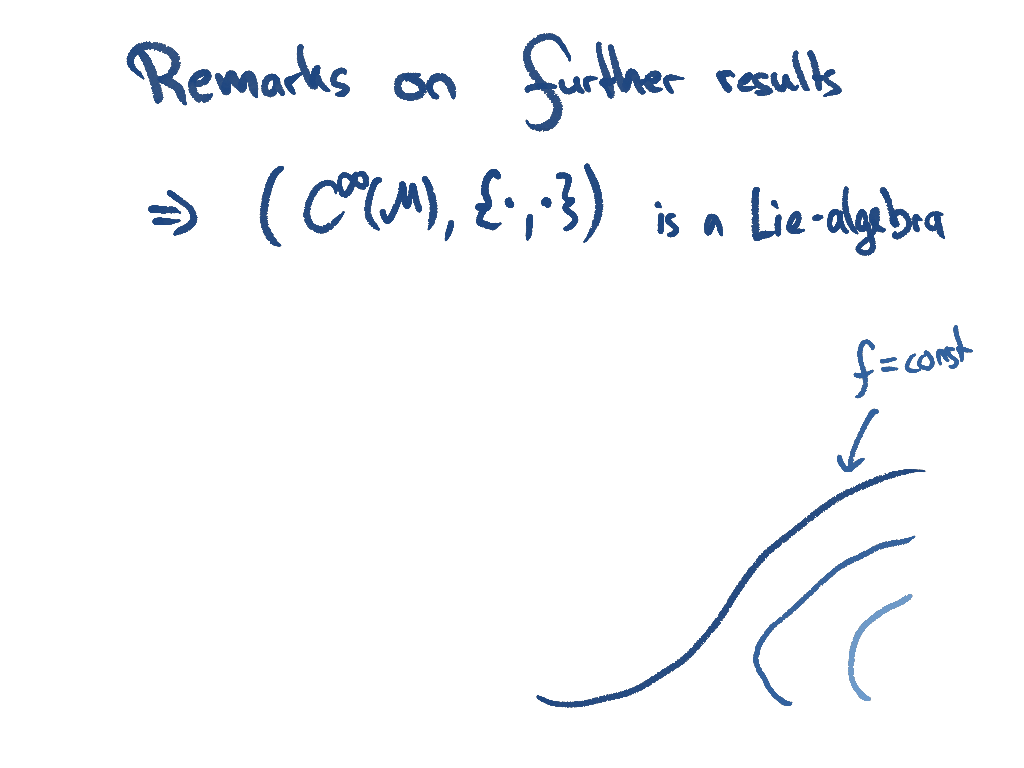 Remarks on further results
⇒ ( C^∞(M), {·,·} ) is a Lie-algebra
f = const